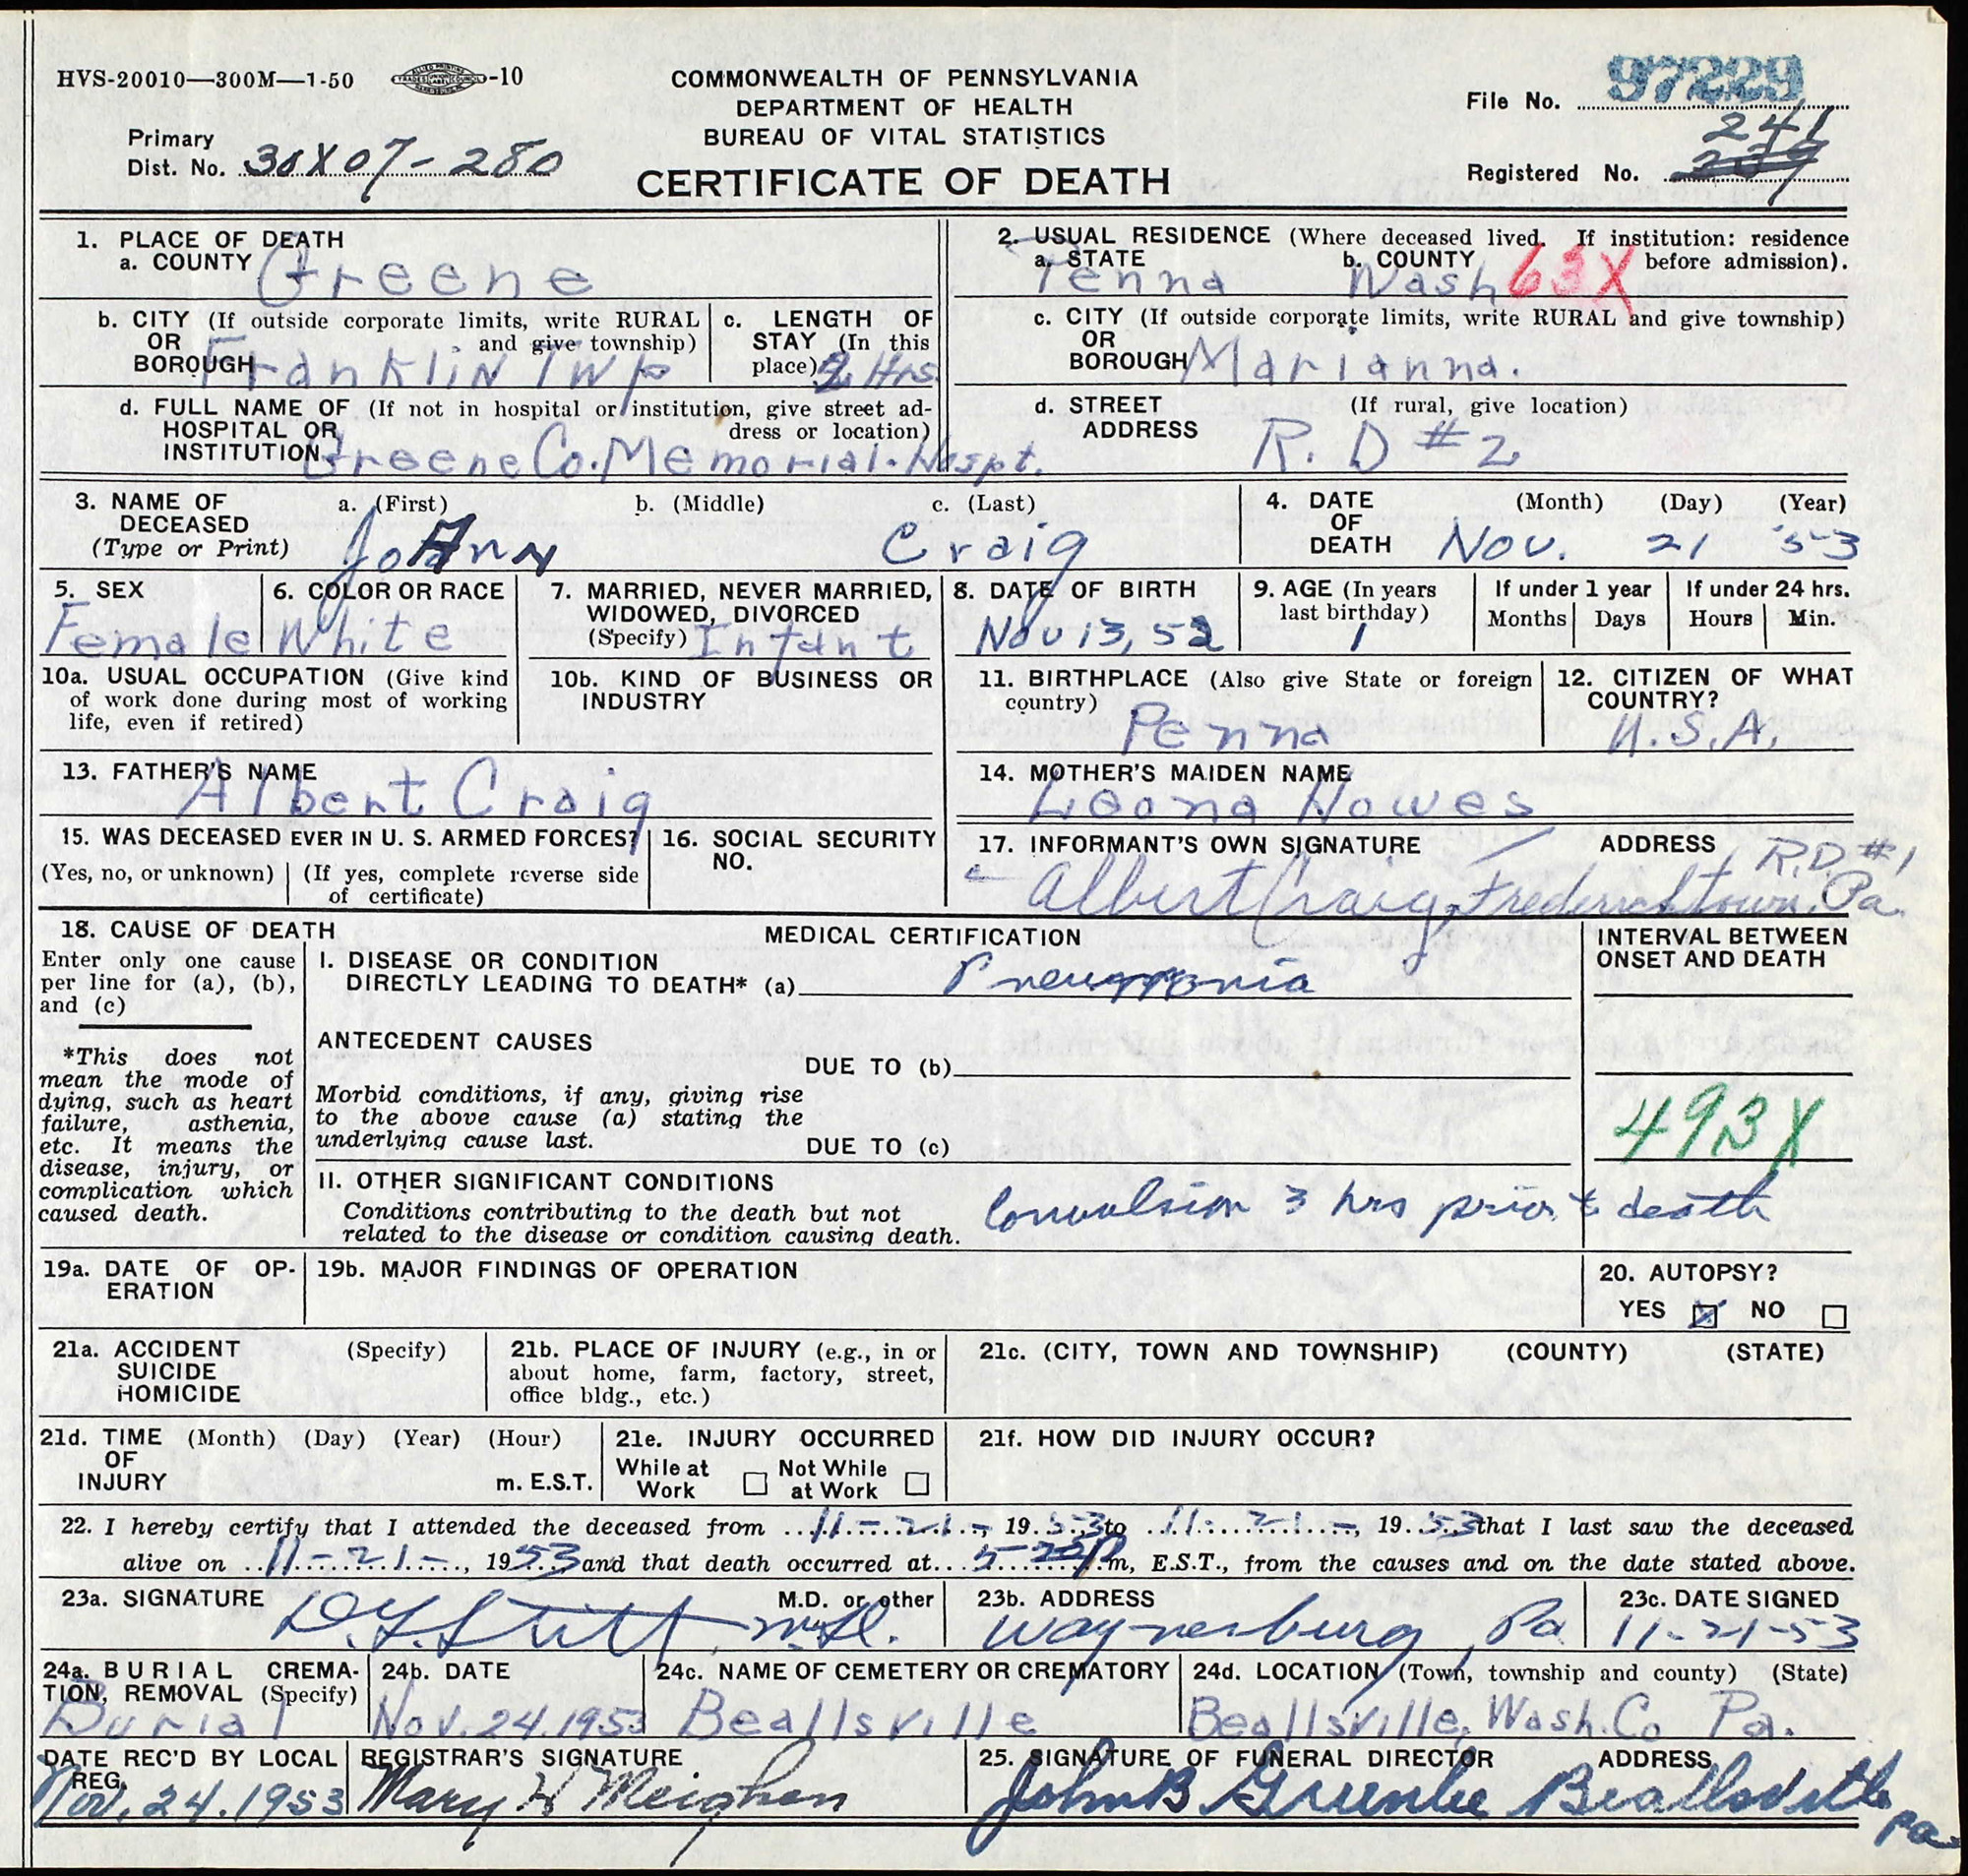 HVS-20010—300M—1-50 -10
COMMONWEALTH OF PENNSYLVANIA
DEPARTMENT OF HEALTH
BUREAU OF VITAL STATISTICS
CERTIFICATE OF DEATH
File No. 97229
Primary
Dist. No. 30X07-280
241
Registered No. 239
1. PLACE OF DEATH
a. COUNTY Greene
b. CITY (If outside corporate limits, write RURAL
OR and give township)
BOROUGH Franklin Twp
c. LENGTH OF
STAY (In this
place) 2 Hrs.
d. FULL NAME OF (If not in hospital or institution, give street ad-
HOSPITAL OR dress or location)
INSTITUTION Greene Co. Memorial. Hospt.
2. USUAL RESIDENCE (Where deceased lived. If institution: residence
a. STATE b. COUNTY before admission).
Penna Wash 63X
c. CITY (If outside corporate limits, write RURAL and give township)
OR
BOROUGH Marianna.
d. STREET (If rural, give location)
ADDRESS R. D #2
3. NAME OF a. (First) b. (Middle) c. (Last)
DECEASED
(Type or Print) JoAnn Craig
4. DATE (Month) (Day) (Year)
OF
DEATH Nov. 21 '53
5. SEX
Female
6. COLOR OR RACE
White
7. MARRIED, NEVER MARRIED,
WIDOWED, DIVORCED
(Specify) Infant
8. DATE OF BIRTH
Nov 13, 52
9. AGE (In years
last birthday)
1
If under 1 year
Months Days
If under 24 hrs.
Hours Min.
10a. USUAL OCCUPATION (Give kind
of work done during most of working
life, even if retired)
10b. KIND OF BUSINESS OR
INDUSTRY
11. BIRTHPLACE (Also give State or foreign
country)
Penna
12. CITIZEN OF WHAT
COUNTRY?
U.S.A.
13. FATHER'S NAME
Albert Craig
14. MOTHER'S MAIDEN NAME
Leona Howes
15. WAS DECEASED EVER IN U. S. ARMED FORCES?
(Yes, no, or unknown) (If yes, complete reverse side
of certificate)
16. SOCIAL SECURITY
NO.
17. INFORMANT'S OWN SIGNATURE ADDRESS R.D. #1
Albert Craig, Fredericktown, Pa.
18. CAUSE OF DEATH
Enter only one cause
per line for (a), (b),
and (c)
*This does not
mean the mode of
dying, such as heart
failure, asthenia,
etc. It means the
disease, injury, or
complication which
caused death.
MEDICAL CERTIFICATION
I. DISEASE OR CONDITION
DIRECTLY LEADING TO DEATH* (a) Pneumonia
ANTECEDENT CAUSES
DUE TO (b)
Morbid conditions, if any, giving rise
to the above cause (a) stating the
underlying cause last.
DUE TO (c)
II. OTHER SIGNIFICANT CONDITIONS
Conditions contributing to the death but not
related to the disease or condition causing death.
Convulsion 3 hrs prior to death
INTERVAL BETWEEN
ONSET AND DEATH
493X
19a. DATE OF OP-
ERATION
19b. MAJOR FINDINGS OF OPERATION
20. AUTOPSY?
YES NO
21a. ACCIDENT (Specify)
SUICIDE
HOMICIDE
21b. PLACE OF INJURY (e.g., in or
about home, farm, factory, street,
office bldg., etc.)
21c. (CITY, TOWN AND TOWNSHIP) (COUNTY) (STATE)
21d. TIME (Month) (Day) (Year) (Hour)
OF
INJURY m. E.S.T.
21e. INJURY OCCURRED
While at Not While
Work at Work
21f. HOW DID INJURY OCCUR?
22. I hereby certify that I attended the deceased from 11-21-, 1953 to 11-21-, 1953 that I last saw the deceased
alive on 11-21-, 1953 and that death occurred at m, E.S.T., from the causes and on the date stated above.
23a. SIGNATURE M.D. or other
D.G. Stitt M.D.
23b. ADDRESS
Waynesburg, Pa
23c. DATE SIGNED
11-21-53
24a. BURIAL CREMA-
TION, REMOVAL (Specify)
Burial
24b. DATE
Nov. 24. 1953
24c. NAME OF CEMETERY OR CREMATORY
Beallsville
24d. LOCATION (Town, township and county) (State)
Beallsville, Wash. Co Pa.
DATE REC'D BY LOCAL
REG.
Nov. 24. 1953
REGISTRAR'S SIGNATURE
Mary H Meighen
25. SIGNATURE OF FUNERAL DIRECTOR ADDRESS
John B Greenlee Beallsville
Pa.